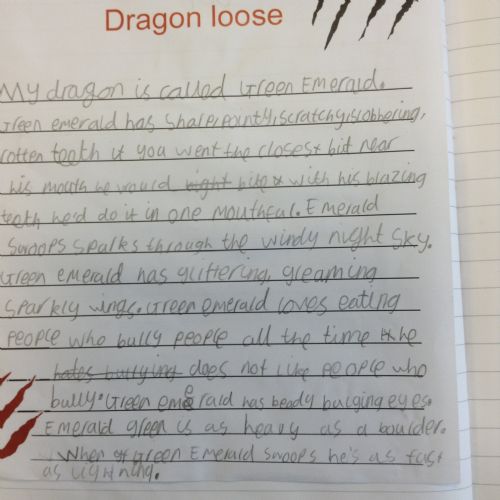 Dragon loose
My dragon is called Green Emerald.
Green emerald has sharp, pointy, scratchy, slobbering,
rotten teeth if you went the closest bit near
his mouth he would bite it with his blazing
teeth he'd do it in one mouthful. Emerald
swoops sparks through the windy night sky.
Green emerald has glittering, gleaming
sparkly wings. Green emerald loves eating
people who bully people all the time he
hates bullying does not like people who
bully. Green emerald has beady bulging eyes.
Emerald green is as heavy as a boulder.
When Green Emerald swoops he's as fast
as lightning.